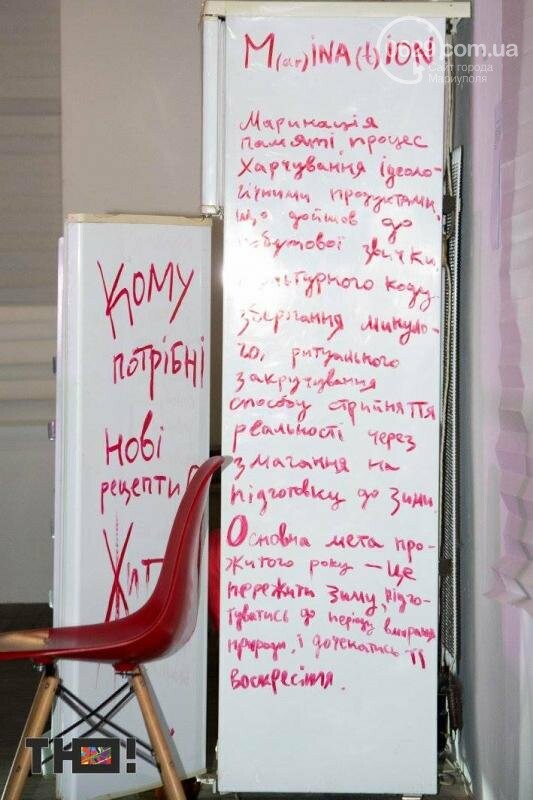 0629.com.ua
Сайт города
Мариуполя
M(ar)INA(t)ION
Маринація
пам'яті, процес
харчування ідеоло-
гічними продуктами,
що дойшов до
побутової звички,
культурного коду
зберігання минуло-
го, ритуального
закручування
способу сприйняття
реальності через
змагання на
підготовку до зими.
Основна мета про-
житого року — це
пережити зиму, підго-
туватись до періоду вмирання
природи, і дочекатись її
воскресіння.
Кому
потрібні
нові
рецепти
ТНО!